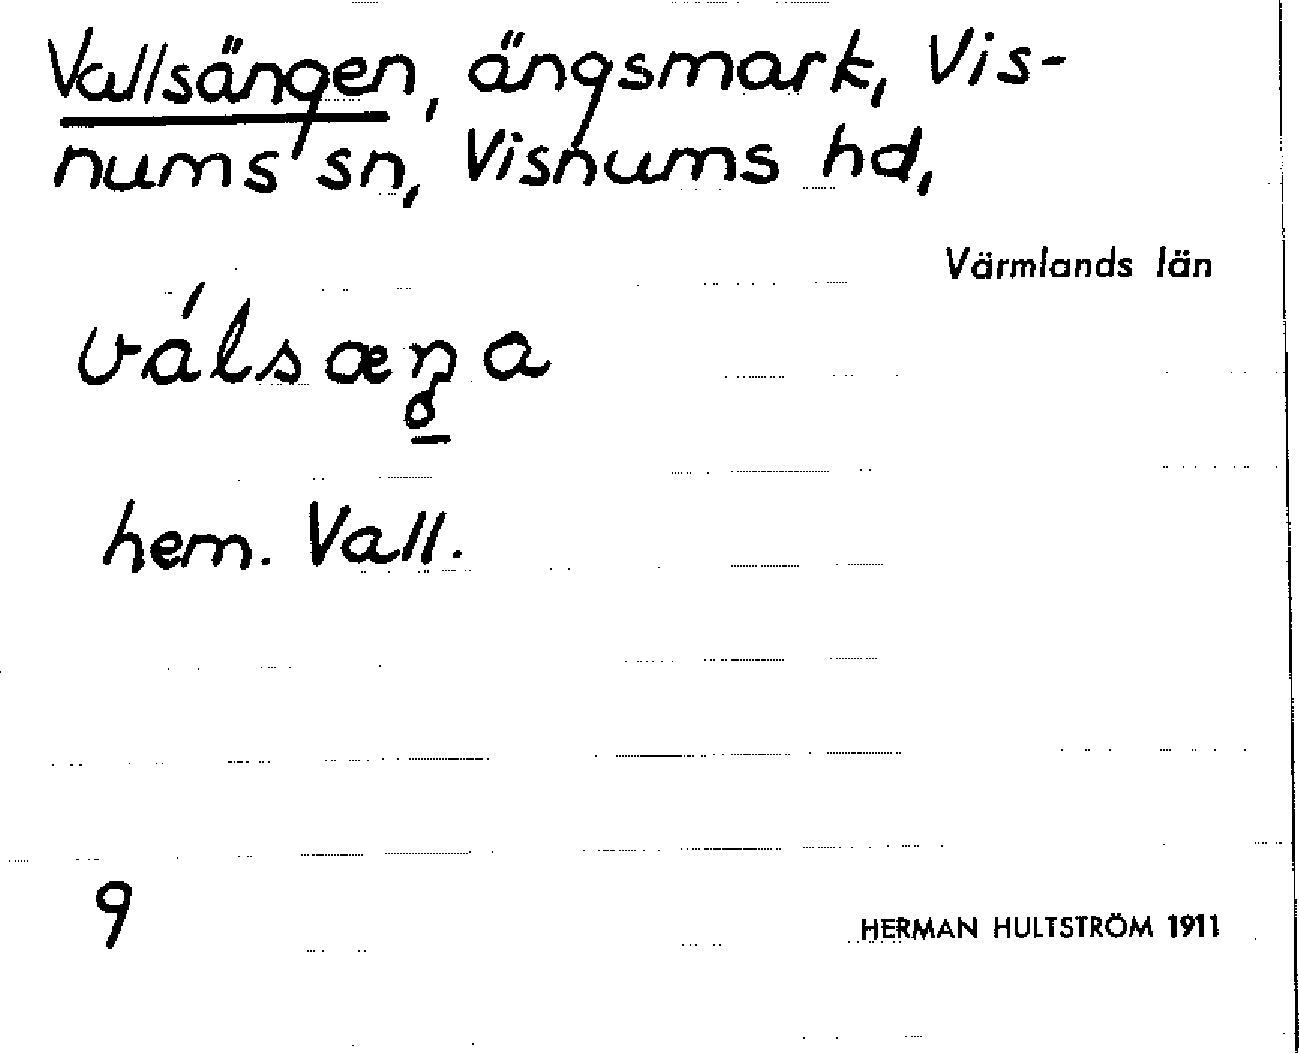 Vallsängen, ängsmark, Vis-
nums sn, Visnums hd,
Värmlands län
válsæŋa
hem. Vall.
9
HERMAN HULTSTRÖM 1911